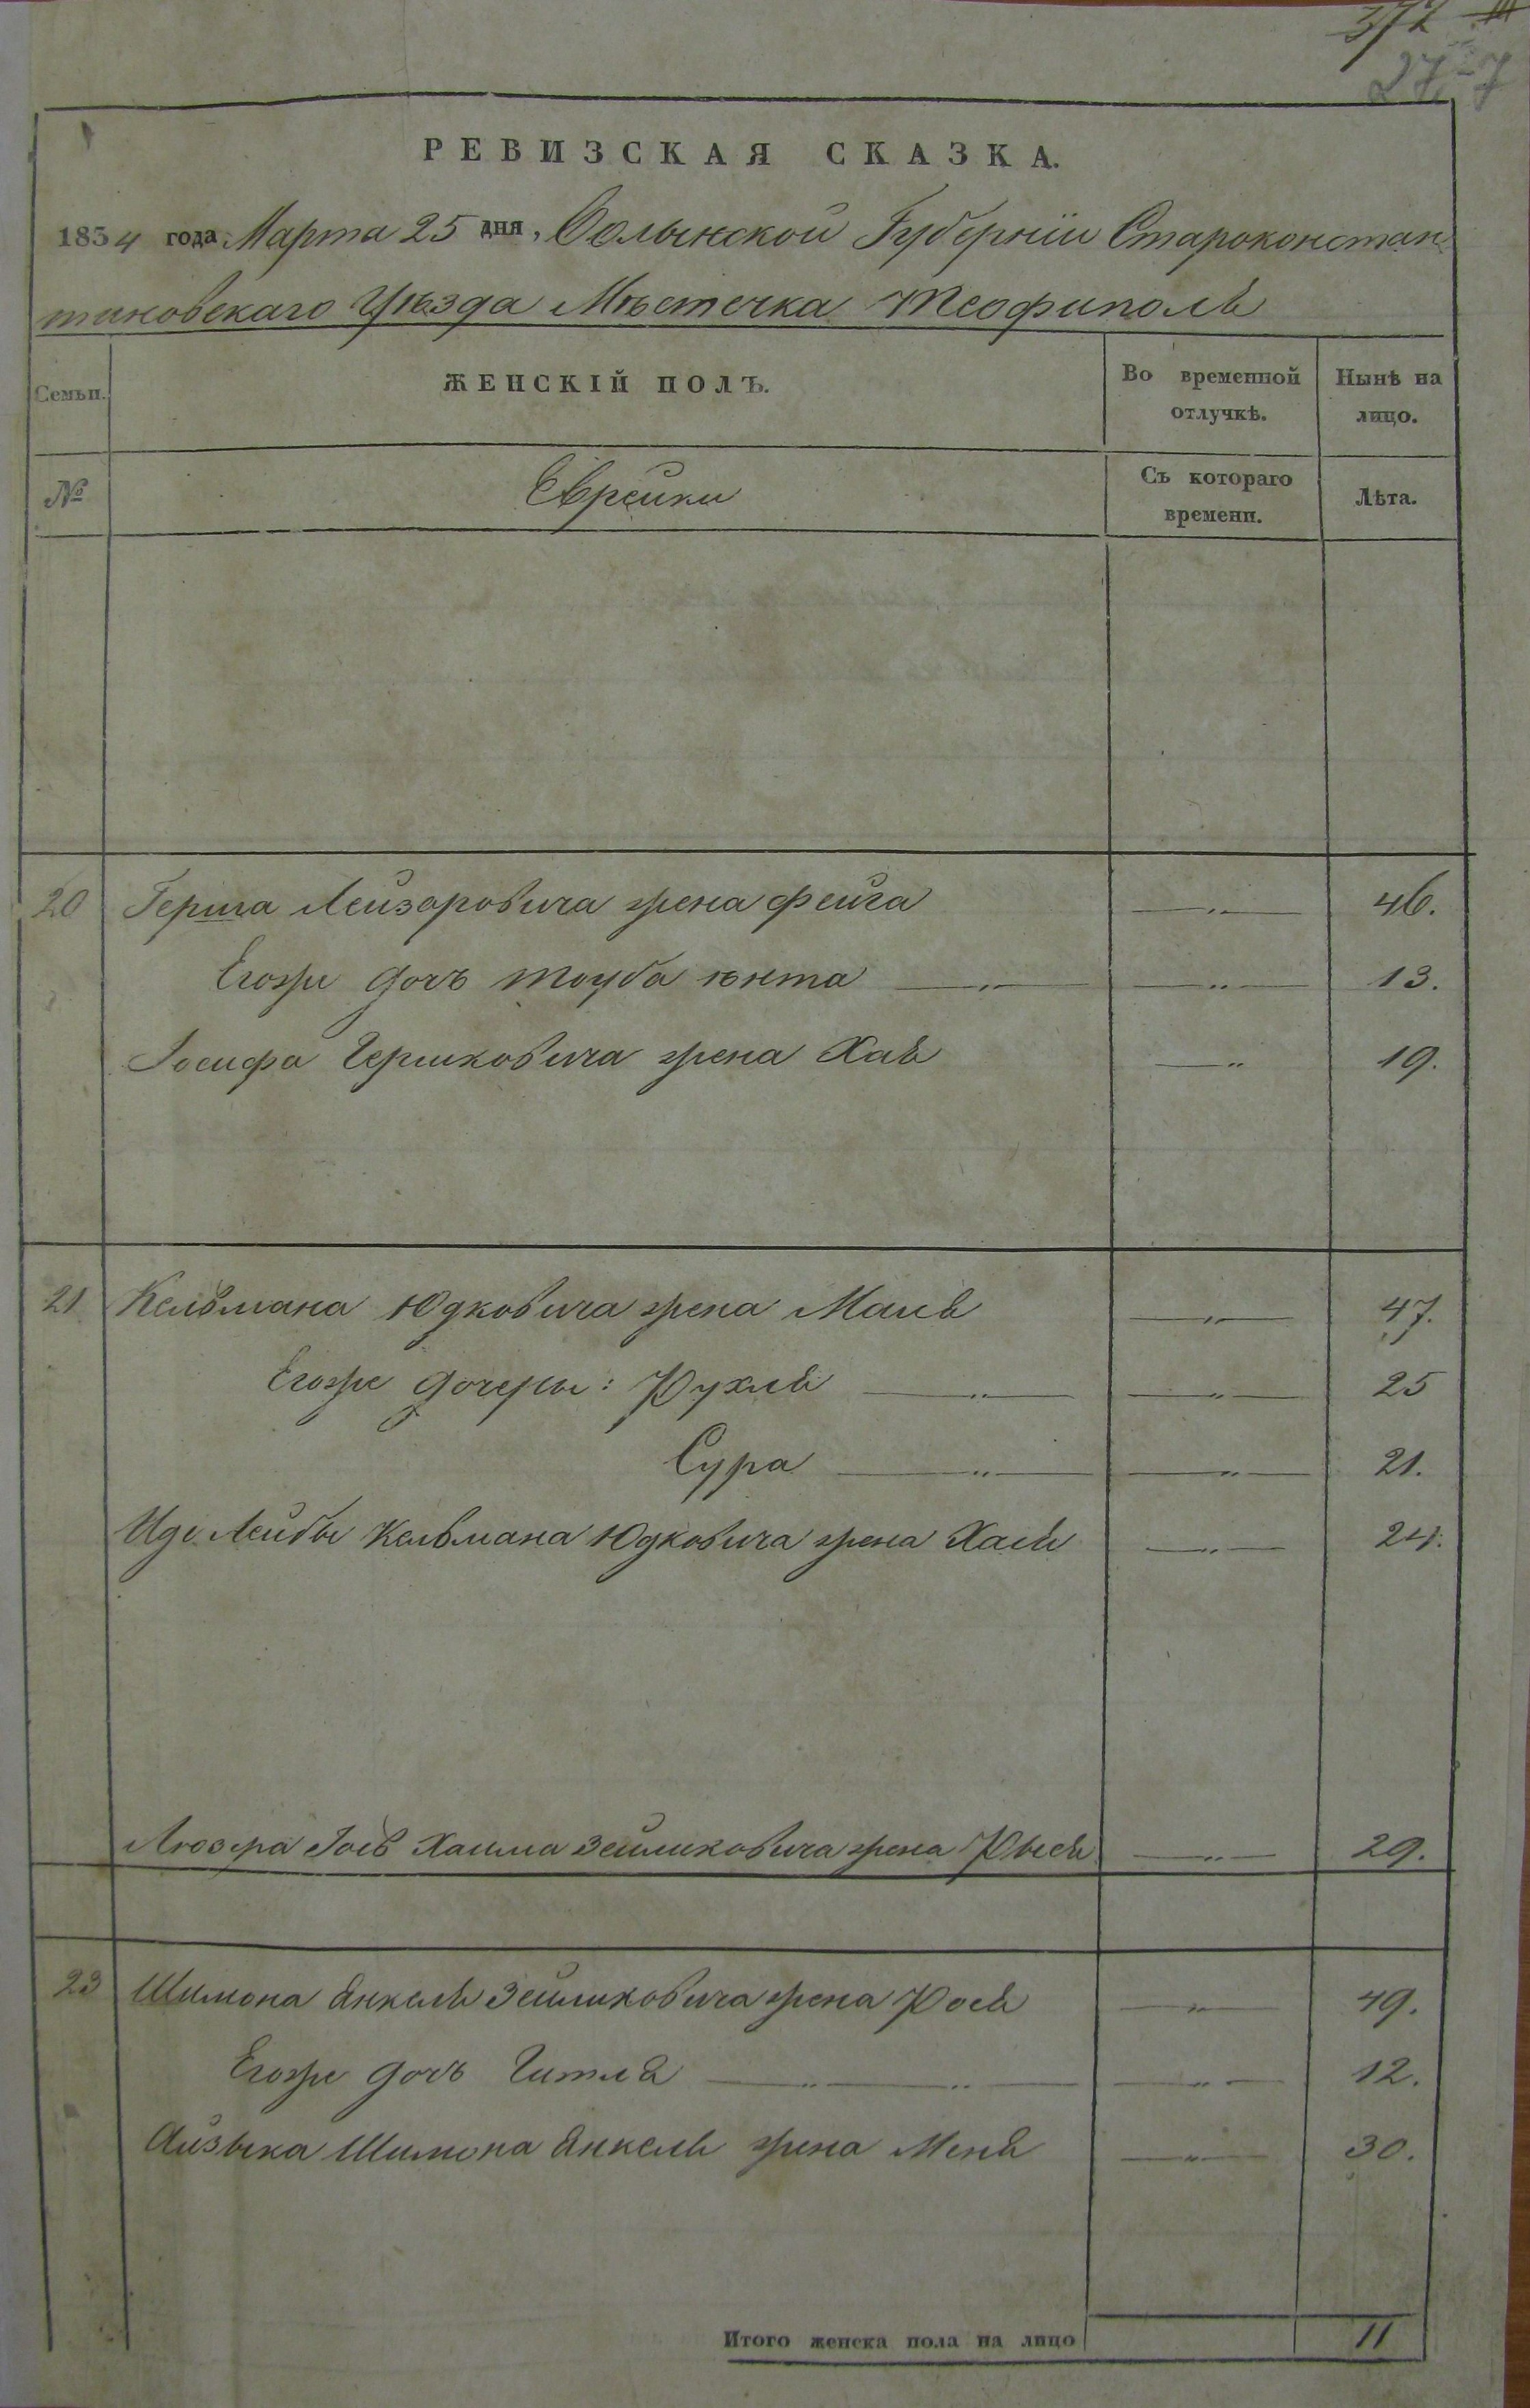 372
27
РЕВИЗСКАЯ СКАЗКА.
1854 года Марта 25 дня, Волынской Губернiи Староконстан
тиновскаго Уѣзда Мѣстечка Теофиполя
Семьи. ЖЕНСКІЙ ПОЛЪ. Во временной отлучкѣ. Нынѣ на лицо.
№ Еврейки Съ котораго времени. Лѣта.
20 Герша Лейзоровича жена фейга —"— 46.
Егоже дочь тоуба юнта —"— —"— 13.
Іосифа Гершковича жена Хая —" 19.
21 Кельмана Юдковича жена Маля —"— 47.
Егоже дочеры: Рухля —"— —"— 25
Сура —"— —"— 21.
Иде Лейбы Кельмана Юдковича жена Хая —"— 24.
Люзера Іось Хаима Зейликовича жена Рыся —"— 29.
23 Шимона Янкеля Зейликовича жена Рося —"— 49.
Егоже дочь Гитля —"—"— —"— 12.
Айзыка Шимона Янкеля жена Меня —"— 30.
Итого женска пола на лицо 11